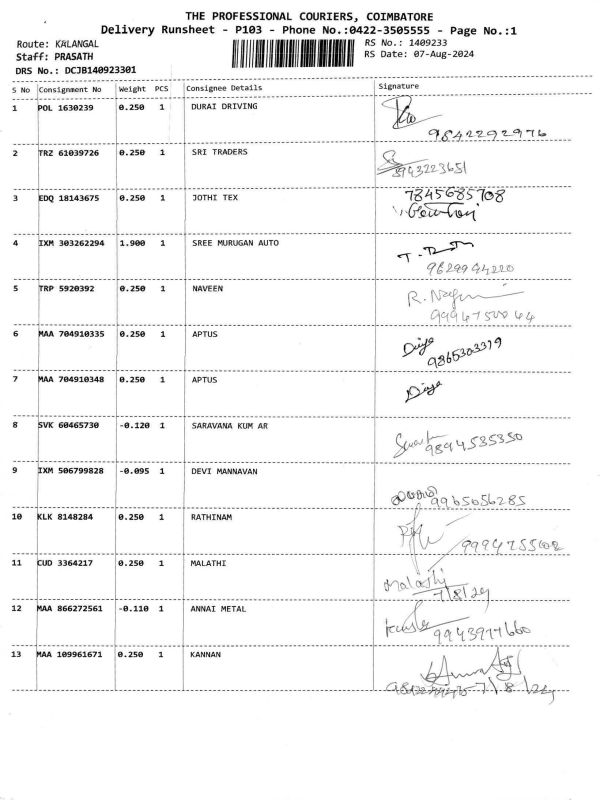 THE PROFESSIONAL COURIERS, COIMBATORE
Delivery Runsheet - P103 - Phone No.:0422-3505555 - Page No.:1
Route: KALANGAL
Staff: PRASATH
DRS No.: DCJB140923301
RS No.: 1409233
RS Date: 07-Aug-2024
S No Consignment No Weight PCS Consignee Details Signature
1 POL 1630239 0.250 1 DURAI DRIVING
9842292976
2 TRZ 61039726 0.250 1 SRI TRADERS
8943223651
3 EDQ 18143675 0.250 1 JOTHI TEX
7845685708
4 IXM 303262294 1.900 1 SREE MURUGAN AUTO
9629994220
5 TRP 5920392 0.250 1 NAVEEN
6 MAA 704910335 0.250 1 APTUS
Divya
9865303379
7 MAA 704910348 0.250 1 APTUS
Divya
8 SVK 60465730 -0.120 1 SARAVANA KUM AR
9894535350
9 IXM 506799828 -0.095 1 DEVI MANNAVAN
9965056285
10 KLK 8148284 0.250 1 RATHINAM
9994755608
11 CUD 3364217 0.250 1 MALATHI
Malathi
7/8/24
12 MAA 866272561 -0.110 1 ANNAI METAL
9943977660
13 MAA 109961671 0.250 1 KANNAN
7/8/24